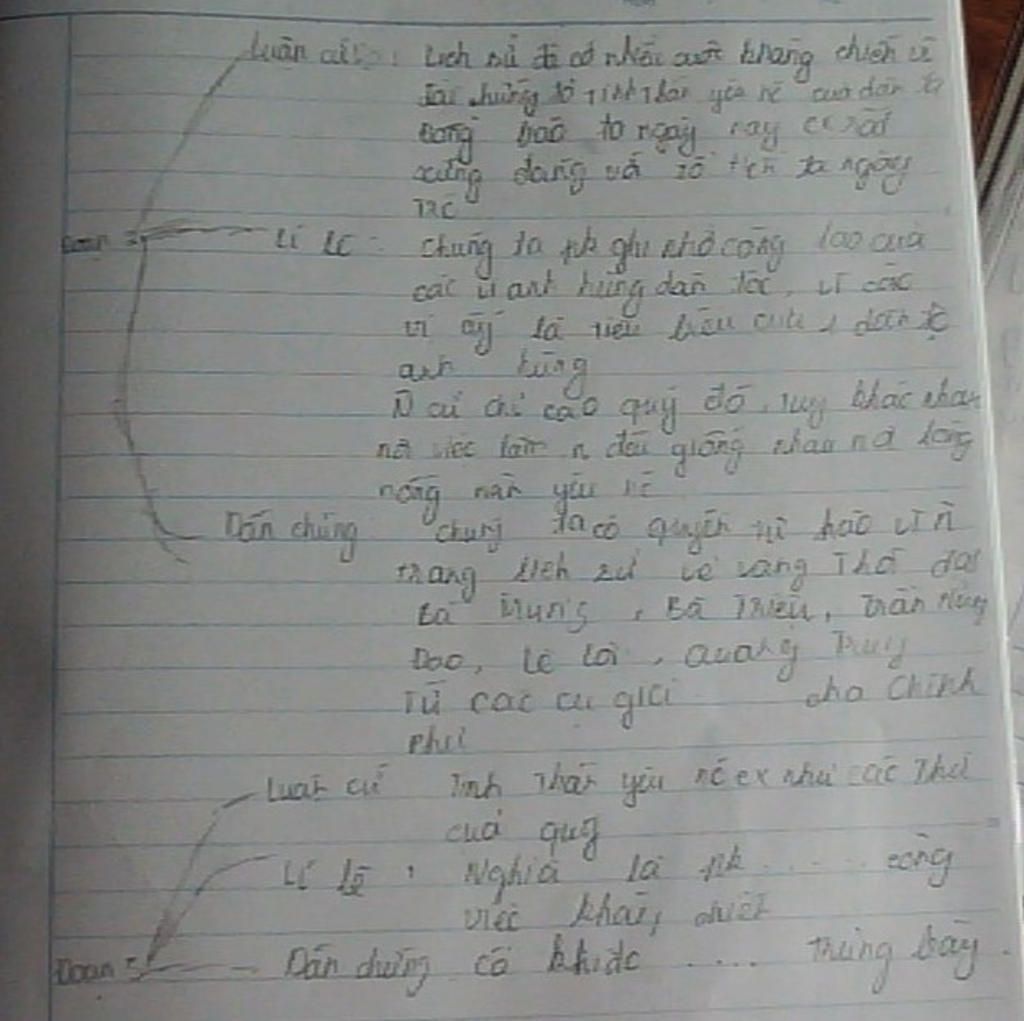 Luận cứ : Lịch sử đã có nhiều cuộc kháng chiến vĩ
đại chứng tỏ tinh thần yêu nc của dân ta
Đồng bào ta ngày nay cx rất
xứng đáng với tổ tiên ta ngày
trc
Đoạn 2 Lí lẽ : Chúng ta pk ghi nhớ công lao của
các vị anh hùng dân tộc, vì các
vị ấy là tiêu biểu của 1 dân tộc
anh hùng
N cử chỉ cao quý đó, tuy khác nhau
nơi việc làm n đều giống nhau nơi lòng
nồng nàn yêu nc
Dẫn chứng Chúng ta có quyền tự hào vì n
trang lịch sử vẻ vang Thời đại
Bà Trưng, Bà Triệu, Trần Hưng
Đạo, Lê Lợi, Quang Trung
Từ các cụ già cho Chính
phủ
Luận cứ Tinh thần yêu nc cx như các thứ
của quý
Lí lẽ : Nghĩa là pk .... công
việc kháng chiến
Đoạn 3 Dẫn chứng có khi đc .... trưng bày.